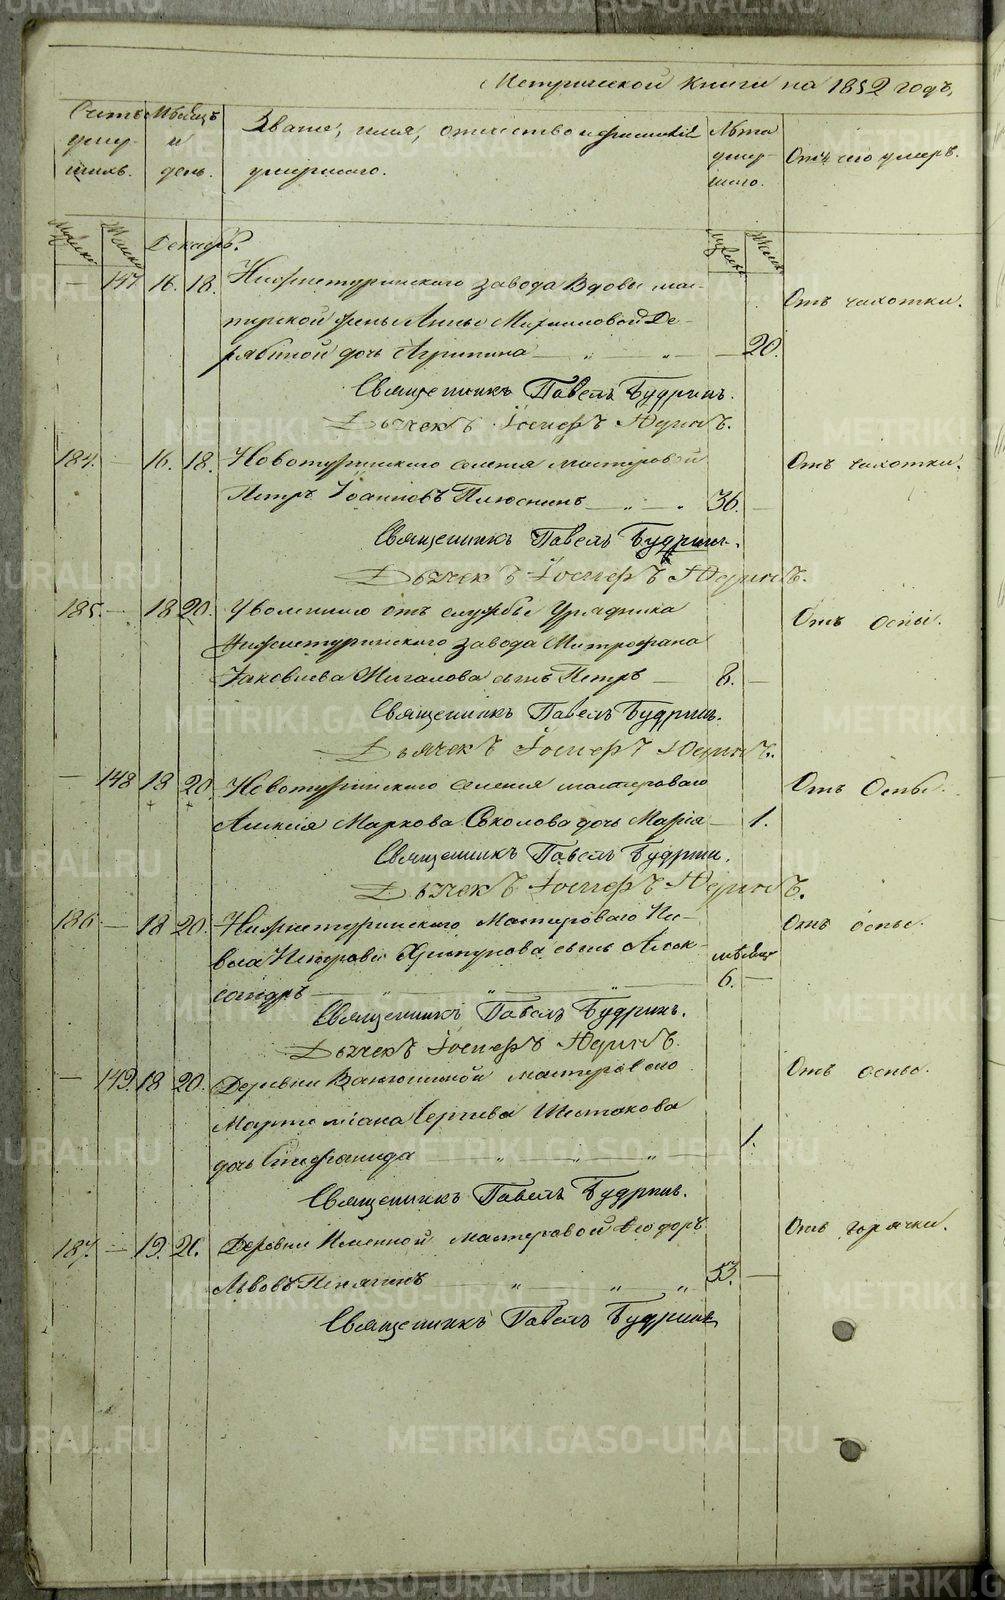 Метрической книги на 1852 годъ,
Счетъ умер-шихъ.
Мѣсяцъ и день.
Званіе, имя, отчество и фамилія умершаго.
Лѣта умер-шаго.
Отъ чего умеръ.
Мужска Женска Декабрь. Мужска Женска
— 147. 16. 18. Нижнетуринскаго завода Вдовы мас-
Отъ чахотки.
терской жены Анны Михайловой Де-
рябиной дочь Агрипина — „ — „ — 20.
Священникъ Павелъ Будринъ.
Дьячекъ Іосифъ
184. — 16. 18. Новотуринскаго селенія мастеровой
Отъ чахотки.
Петръ Іоанновъ Плюснинъ — „ — „ 36. —
Священникъ Павелъ Будринъ.
Дьячекъ Іосифъ
185. — 18 20. Уволеннаго отъ службы Урядника
Отъ оспы.
Нижнетуринскаго завода Митрофана
Іаковлева Мигалова сынъ Петръ — 8. —
Священникъ Павелъ Будринъ.
Дьячекъ Іосифъ
— 148 18 20. Новотуринскаго селенія мастероваго
Отъ Оспы.
Алексія Маркова Соколова дочь Марія — 1.
Священникъ Павелъ Будринъ.
Дьячекъ Іосифъ
186 — 18 20. Нижнетуринскаго Мастероваго Па-
Отъ оспы.
вла сынъ Алек-
мѣсяц
сандръ — „ — „ — „ — 6. —
Священникъ Павелъ Будринъ.
Дьячекъ Іосифъ
— 149. 18 20. Деревни мастероваго
Отъ оспы.
Мартиміана Сергѣева Шестакова
1.
дочь Стефанида — „ — „ — „ —
Священникъ Павелъ Будринъ.
187. — 19. 21. Деревни Именной мастеровой Ѳеодоръ
Отъ горячки.
Львовъ — „ — „ — „ 53. —
Священникъ Павелъ Будринъ
METRIKI.GASO-URAL.RU